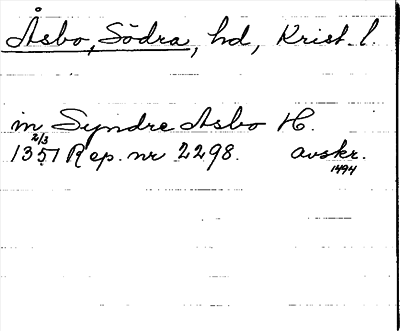 Åsbo, Södra, hd, Krist. l.
in Syndre Asbo H.
2/3
1357 Rep. nr 2298. avskr.
1494